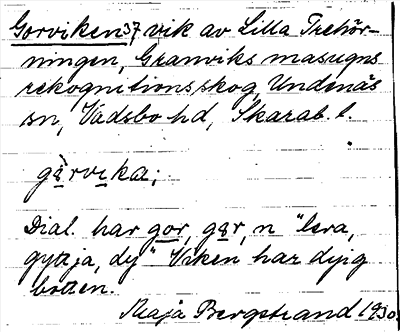 Gorviken 37 vik av Lilla Trehör-
ningen, Granviks masugns
rekognitionsskog, Undenäs
sn, Vadsbo hd, Skarab. l.
gàrvika;
Dial. har gor, gar, n "lera,
gyttja, dy" Viken har dyig
botten.
Maja Bergstrand 1930